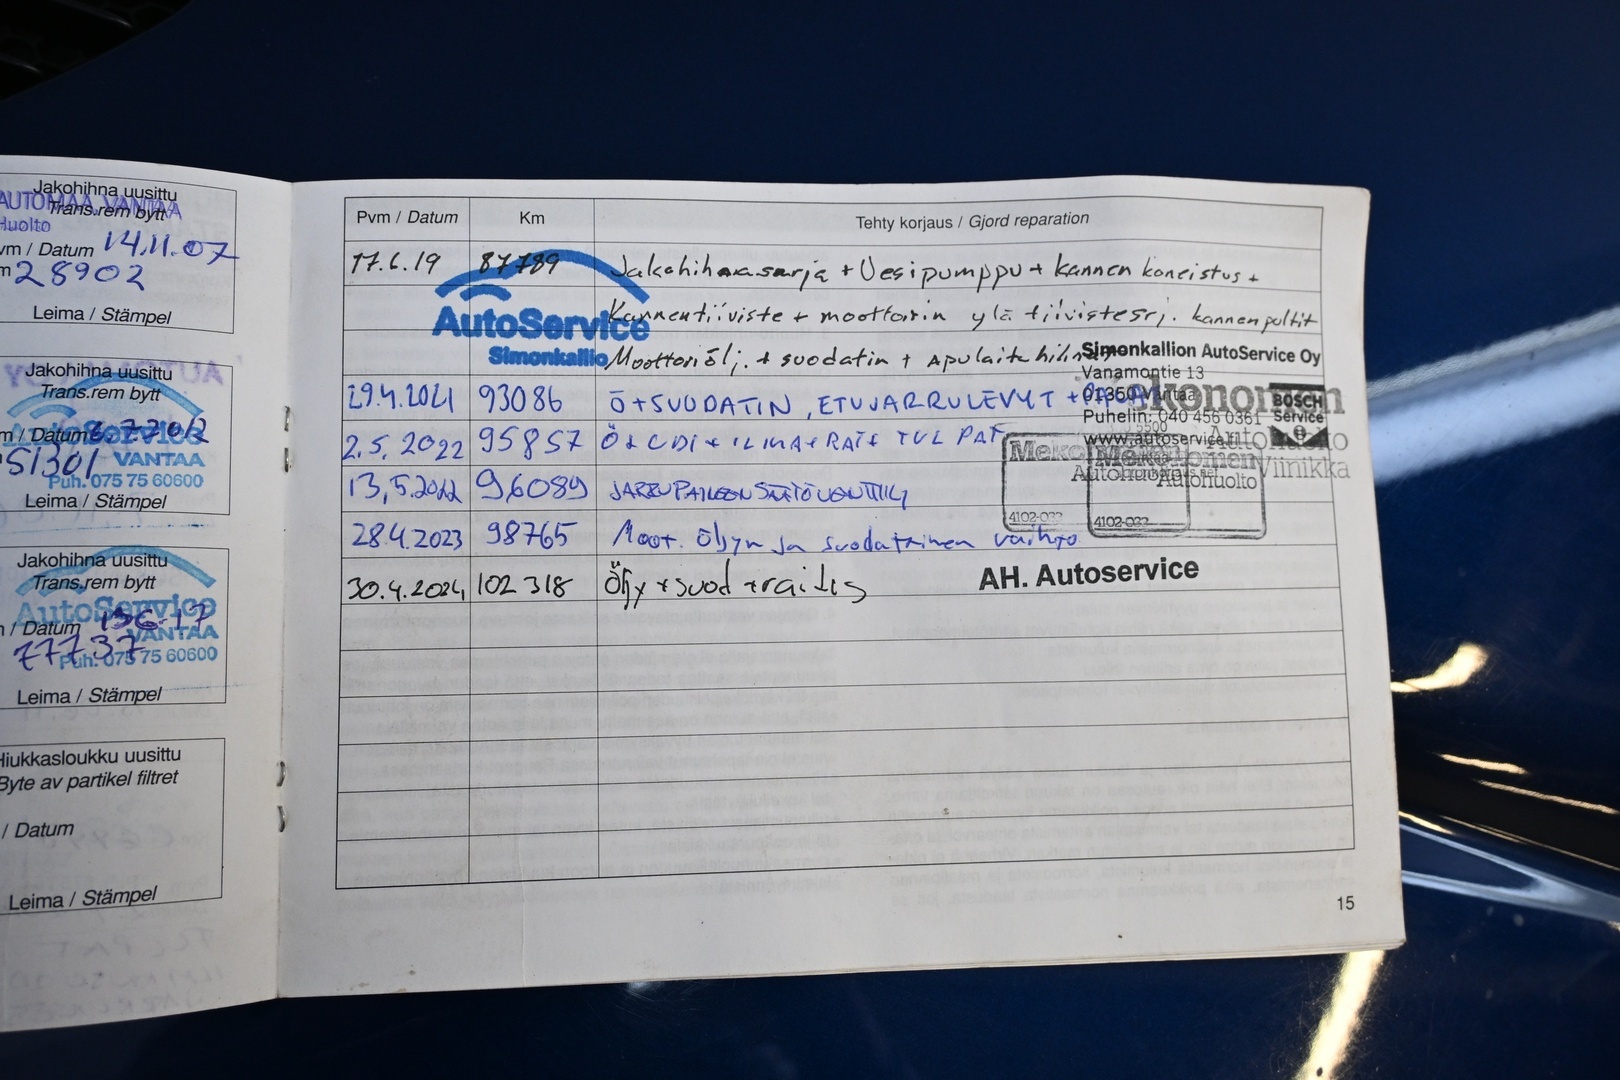 Jakohihna uusittu
Trans.rem bytt
AUTOMAA VANTAA
Huolto
vm / Datum 14.11.07
m 28902
Leima / Stämpel
Jakohihna uusittu
Trans.rem bytt
AutoService
m / Datum
51301 VANTAA
Puh. 075 75 60600
Leima / Stämpel
Jakohihna uusittu
Trans.rem bytt
AutoService
/ Datum 136.17
VANTAA
77737
Puh. 075 75 60600
Leima / Stämpel
Hiukkasloukku uusittu
Byte av partikel filtret
/ Datum
Leima / Stämpel
Pvm / Datum Km Tehty korjaus / Gjord reparation
17.6.19 87789 Jakohihnasarja + Vesipumppu + kannen koneistus +
AutoService
Kannentiiviste + moottorin ylä tiivistesrj. kannenpultit
Simonkallio
Moottoriölj. + suodatin + apulaitehihna
Simonkallion AutoService Oy
Vanamontie 13
01350 Vantaa
Puhelin: 040 456 0361
www.autoservice
BOSCH
Service
29.4.2021 93086 Ö+SUODATIN, ETUJARRULEVYT +
2.5.2022 95857
Mekonomen
Autohuolto
Viinikka
4102-032
4102-032
13,5.2022 96089
28.4.2023 98765 Moot. öljyn ja suodattimen vaihto
30.4.2024 102 318 Öljy + suod + raitis
AH. Autoservice
15